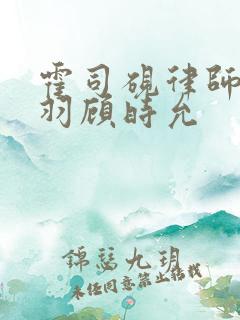 霍司硯律師
羽顧時允
錦瑟九玥
未經同意禁止轉載